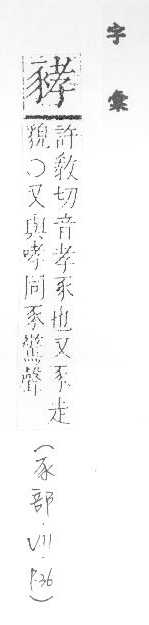 字彙
豨
許教切音孝豕也又豕走
貌○又與哮同豕驚聲
(豕部·VII·P.36)